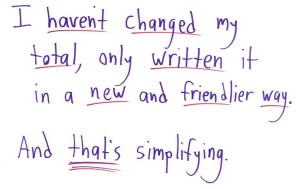 I haven't changed my
total, only written it
in a new and friendlier way.
And that's simplifying.